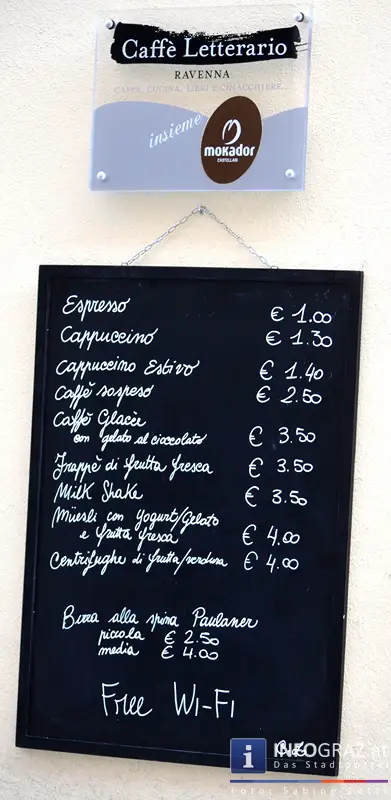 Caffè Letterario
RAVENNA
CAFFÈ, CUCINA, LIBRI E CHIACCHIERE...
insieme
MOKADOR
CASTELLARI
Espresso € 1.00
Cappuccino € 1.30
Cappuccino Estivo € 1.40
Caffè sospeso € 2.50
Caffè Glacèe
con gelato al cioccolato € 3.50
Frappè di frutta fresca € 3.50
Milk Shake € 3.50
Müesli con yogurt/Gelato
e frutta fresca € 4.00
Centrifughe di frutta/verdura € 4.00
Birra alla spina Paulaner
piccola € 2.50
media € 4.00
Free Wi-Fi
INFOGRAZ.at
Das Stadtportal
Foto: Sabine